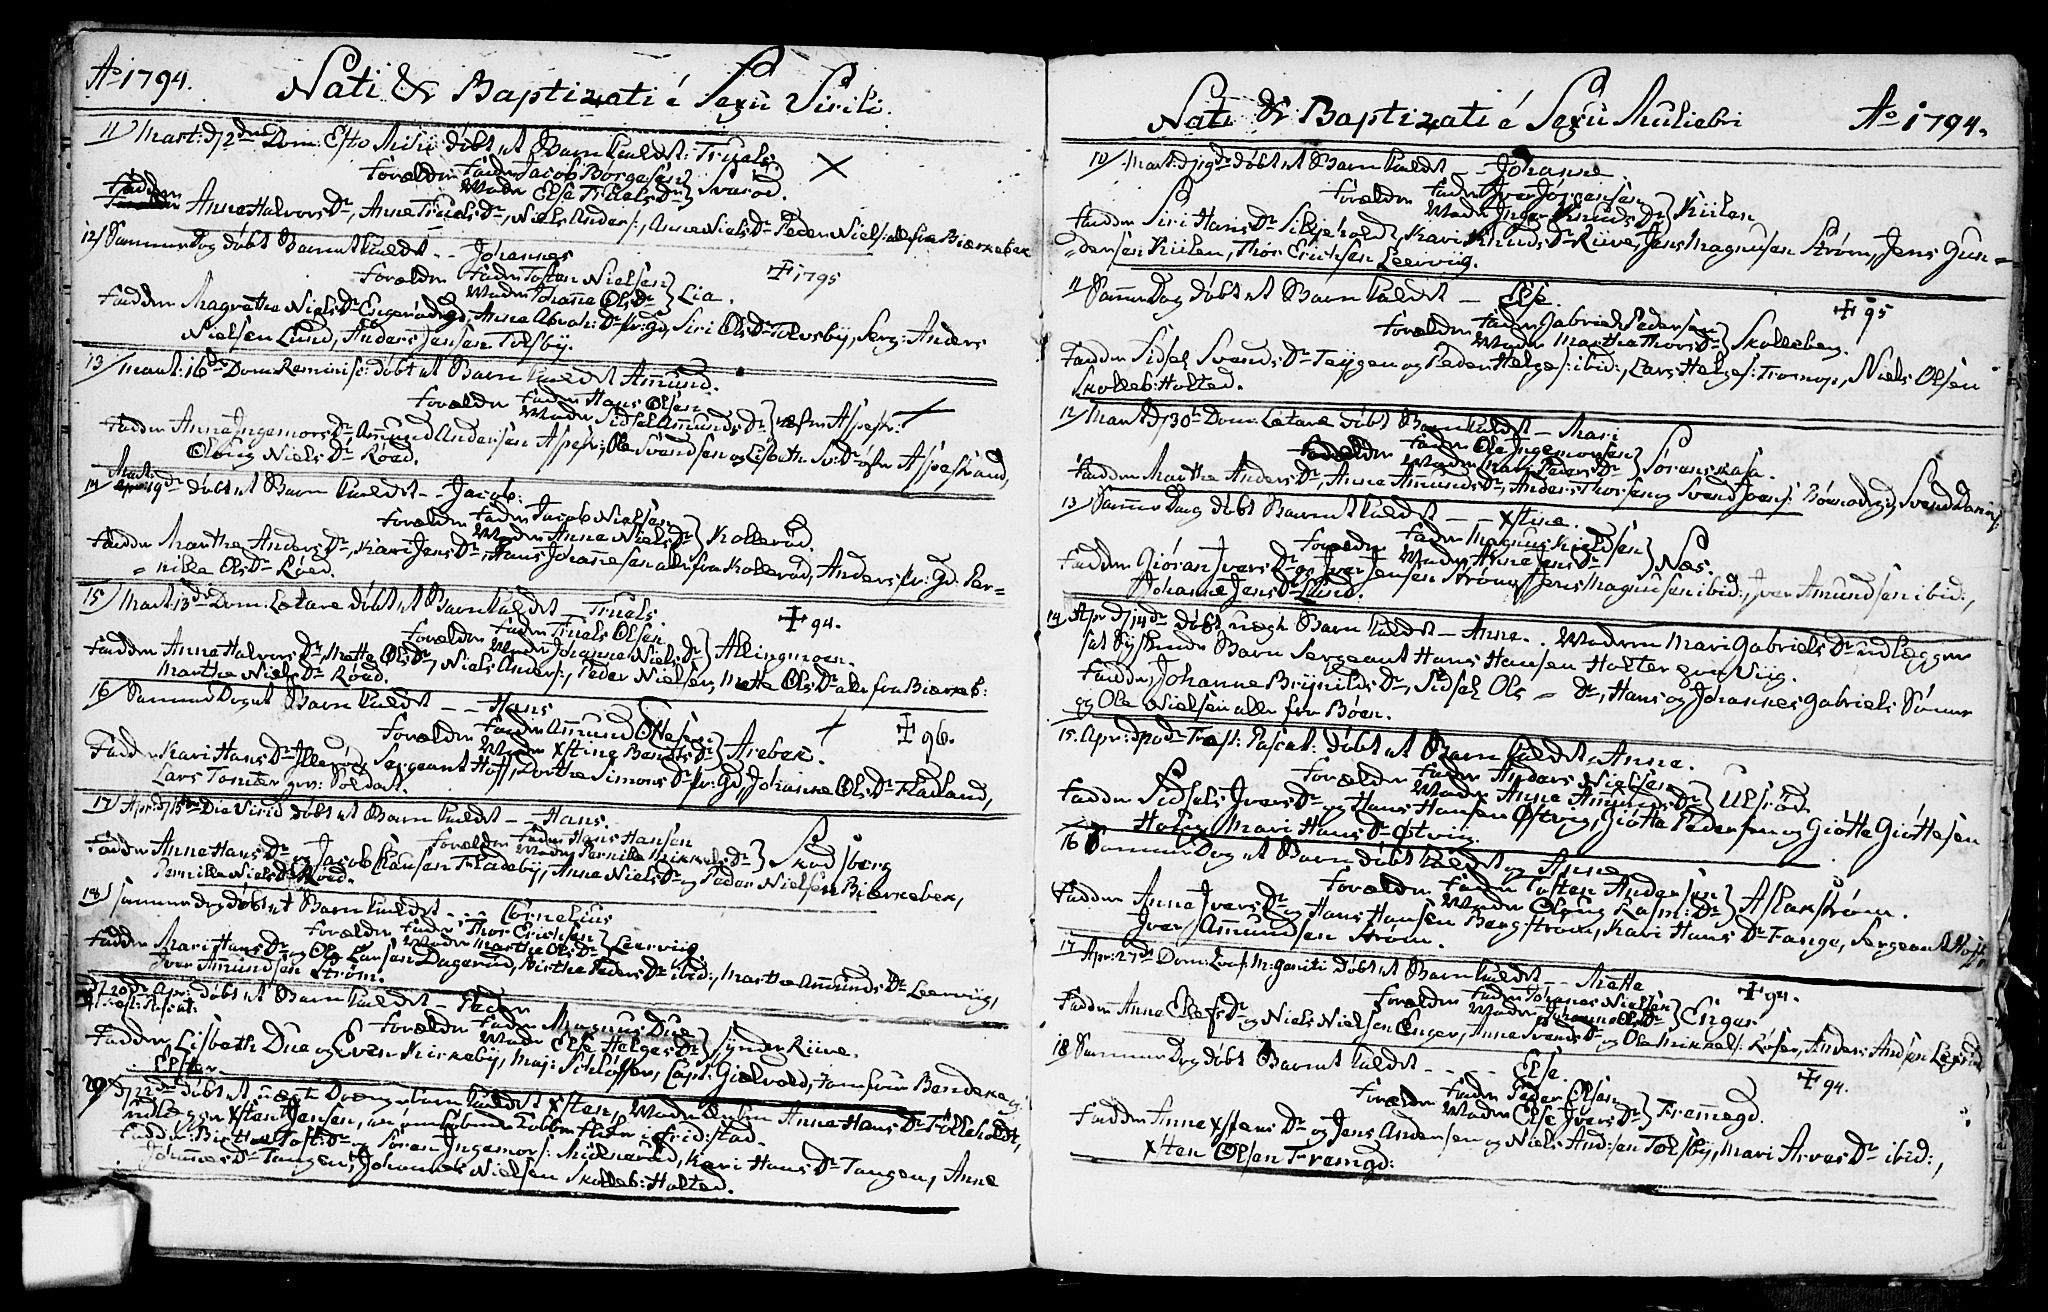 Ao 1794. Nati & Baptizati é Sexu Virili.
11/ Mart: d 2den Dom: Esto Mihi döbt et Barn kaldt: Truels.
Forældre Fader Jacob Borgesen
Moder Else Truels Dr } Svarød.
Faddere Anne Halvors Dr, Anne Truels Dr, Niels Anders:, Anne Niels Dr Peder Niels: alle fra Bierkebek
12/ Samme Dag döbt Barn et kaldt - - Johannes
Forældre Fader Tosten Nielsen
Moder Johanne Ols Dr } Lia. 1795
Faddere Magrethe Niels Dr Engerødgd, Anne Abrah: Dr pr: gd, Siri Ols Dr Tolvsby, Serg: Anders
Nielsen Lund, Anders Jensen Tolsby.
13/ Mart: 16de Dom: Reminisc: döbt et Barn kaldt Amund.
Forældre Fader Hans Olsen
Moder Sidsel Amunds Dr } Aspestr:
Faddere Anne Ingemors Dr, Amund Andersen Aspestr: Ole Svendsen og Lisbeth Sv: Dr Aspestrand,
Oloug Niels Dr Röed.
14/ Mart: 19de döbt et Barn kaldt - - Jacob.
Forældre Fader Jacob Nielsen
Moder Anne Niels Dr } Kollerød.
Faddere Marthe Anders Dr, Kari Jens Dr, Hans Johannesen alle fra Kollerød, Anders pr: Gd: Per-
= nille Ols Dr Löed.
15/ Mart: 13de Dom: Lætare döbt et Barn kaldt - Truels.
Forældre Fader Truels Olsen
Moder Johanne Niels Dr } Allingmoen. 94.
Faddere Anne Halvors Dr, Mette Ols Dr, Niels Anders:, Peder Nielsen, Mette Ols Dr alle fra Bierkeb:
Marthe Niels Dr Röed.
16/ Samme Dag et Barn kaldt - - Hans
Forældre Fader Amund Olsen
Moder Xstine Bents Dr } Arebek. 96.
Faddere Kari Hans Dr Illerød, Sergeant Hoff, Dorthe Simons Dr pr: Gd, Johanne Ols Dr Fladland,
Lars Tomter gev: Soldat.
17/ Apr: d 18de Die Virid döbt et Barn kaldt - - Hans.
Forældre Fader Hans Hansen
Moder Pernille Mikkels Dr } Skudsberg
Faddere Anne Hans Dr og Jacob Hansen Fladeby, Anne Niels Dr og Peder Nielsen Bierkebek,
Pernille Niels Dr Röed.
18/ samme Dag döbt et Barn kaldt - - - Cornelius
Forældre Fader Thor Erichsen
Moder Marthe Ols Dr } Leervig.
Faddere Mari Hans Dr og Ole Larsen Dagerud, Birthe Peders Dr ibid:, Marthe Amunds Dr Leervig,
Iver Amundsen Ström.
d 20de Apr: döbt et Barn kaldt - Peder
Forældre Fader Magnus Due
Moder Else Helges Dr } Synder Riive.
Faddere Lisbeth Due og Even Kirkeby, Maj: Schlosser, Capt: Gielvold, Jomfrue Bendeke og
Elster.
20/ d 22de döbt et uægte Drengebarn kaldet Xsten, Moder Anne Hans Dr Fölleholdt,
udlægger Xsten Jensen, Fridr:stad.
Faddere: Birthe Tost: Dr og Sören Ingemors: Mielnerød, Kari Hans Dr Tangen, Anne
Johannes Dr Tangen, Johannes Nielsen Skolleb: Holted.
Nati & Baptizati é Sexu Muliebri Ao 1794.
10/ Mart: d 19de döbt et Barn kaldt - - Johanne.
Forældre Fader Iver Jörgensen
Moder Inger Knuds Dr } Kiilen
Faddere Siri Hans Dr Siljeholdt, Kari Knuds Dr Riive, Jens Magnusen Ström, Jens Gun-
= dersen Kiilen, Thor Erichsen Leervig.
11 Samme Dag döbt et Barn kaldt - Else. 95
Forældre Fader Gabriel Pedersen
Moder Marthe Thors Dr } Skolleberg.
Faddere Sidsel Svends Dr Tejgen og Peder Helges: ibid:, Lars Helges: Tromop, Niels Olsen
Skolleb: Holted.
12/ Mart: d 30te Dom: Lætare döbt et Barn kaldt - Mari
Forældre Fader Ole Ingemorsen
Moder Mari Peders Dr } Söranskasa.
Faddere Marthe Anders Dr, Anne Amunds Dr, Anders Thorsen og Svend Joens:
13/ Samme Dag döbt Barn et kaldt - - Xstine.
Forældre Fader Magnus Kieldsen
Moder Anne Jens Dr } Næs.
Faddere Giöran Ivers Dr og Iver Jensen Ström, Jens Magnusen ibid:, Iver Amundsen ibid:,
Johanne Jens Dr Lund.
14 Apr d 14de döbt uægte Barn kaldt - Anne. Moderen Mari Gabriels Dr udlægger
Barn Sergeant Hans Hansen Holter
Faddere Johanne Brynilds Dr, Sidsel Ols = Dr, Hans og Johannes Gabriels Sönner
og Ole Nielsen alle fra Böen.
15. Apr: d 20de Fest: Pascat: döbt et Barn kaldt Anne.
Forældre Fader Anders Nielsen
Moder Anne Amunds Dr } Ulsrød.
Faddere Sidsels Ivers Dr og Hans Hansen Östvig, Giötte Pedersen og Giötte Giöttesen
Holm, Mari Hans Dr Östvig.
16 Samme Dag et Barn döbt kaldt og Anne
Forældre Fader Tosten Andersen
Moder Oloug Rasm: Dr } Aslakström.
Faddere Anne Ivers Dr og Hans Hansen Bergström, Kari Hans Dr Tange, Sergeant Hoff,
Iver Amundsen Ström.
17 Apr: 27de Dom: döbt et Barn kaldt - Mette
Forældre Fader Johanes Nielsen
Moder Johanne Ols Dr } Enger 94.
Faddere Anne Elefs Dr og Niels Nielsen Enger, Anne Svends Dr og Ole Mikkels: Röser, Anders Andsen
18 Samme Dag döbt Barn et kaldt - - - - Else. 94.
Forældre Fader Peder Olsen
Moder Else Ivers Dr } Fremmegd.
Faddere Anne Xstens Dr og Jens Andersen og Niels And:sen Tolsby, Mari Arves Dr ibid:,
Xsten Olsen Fremgd: